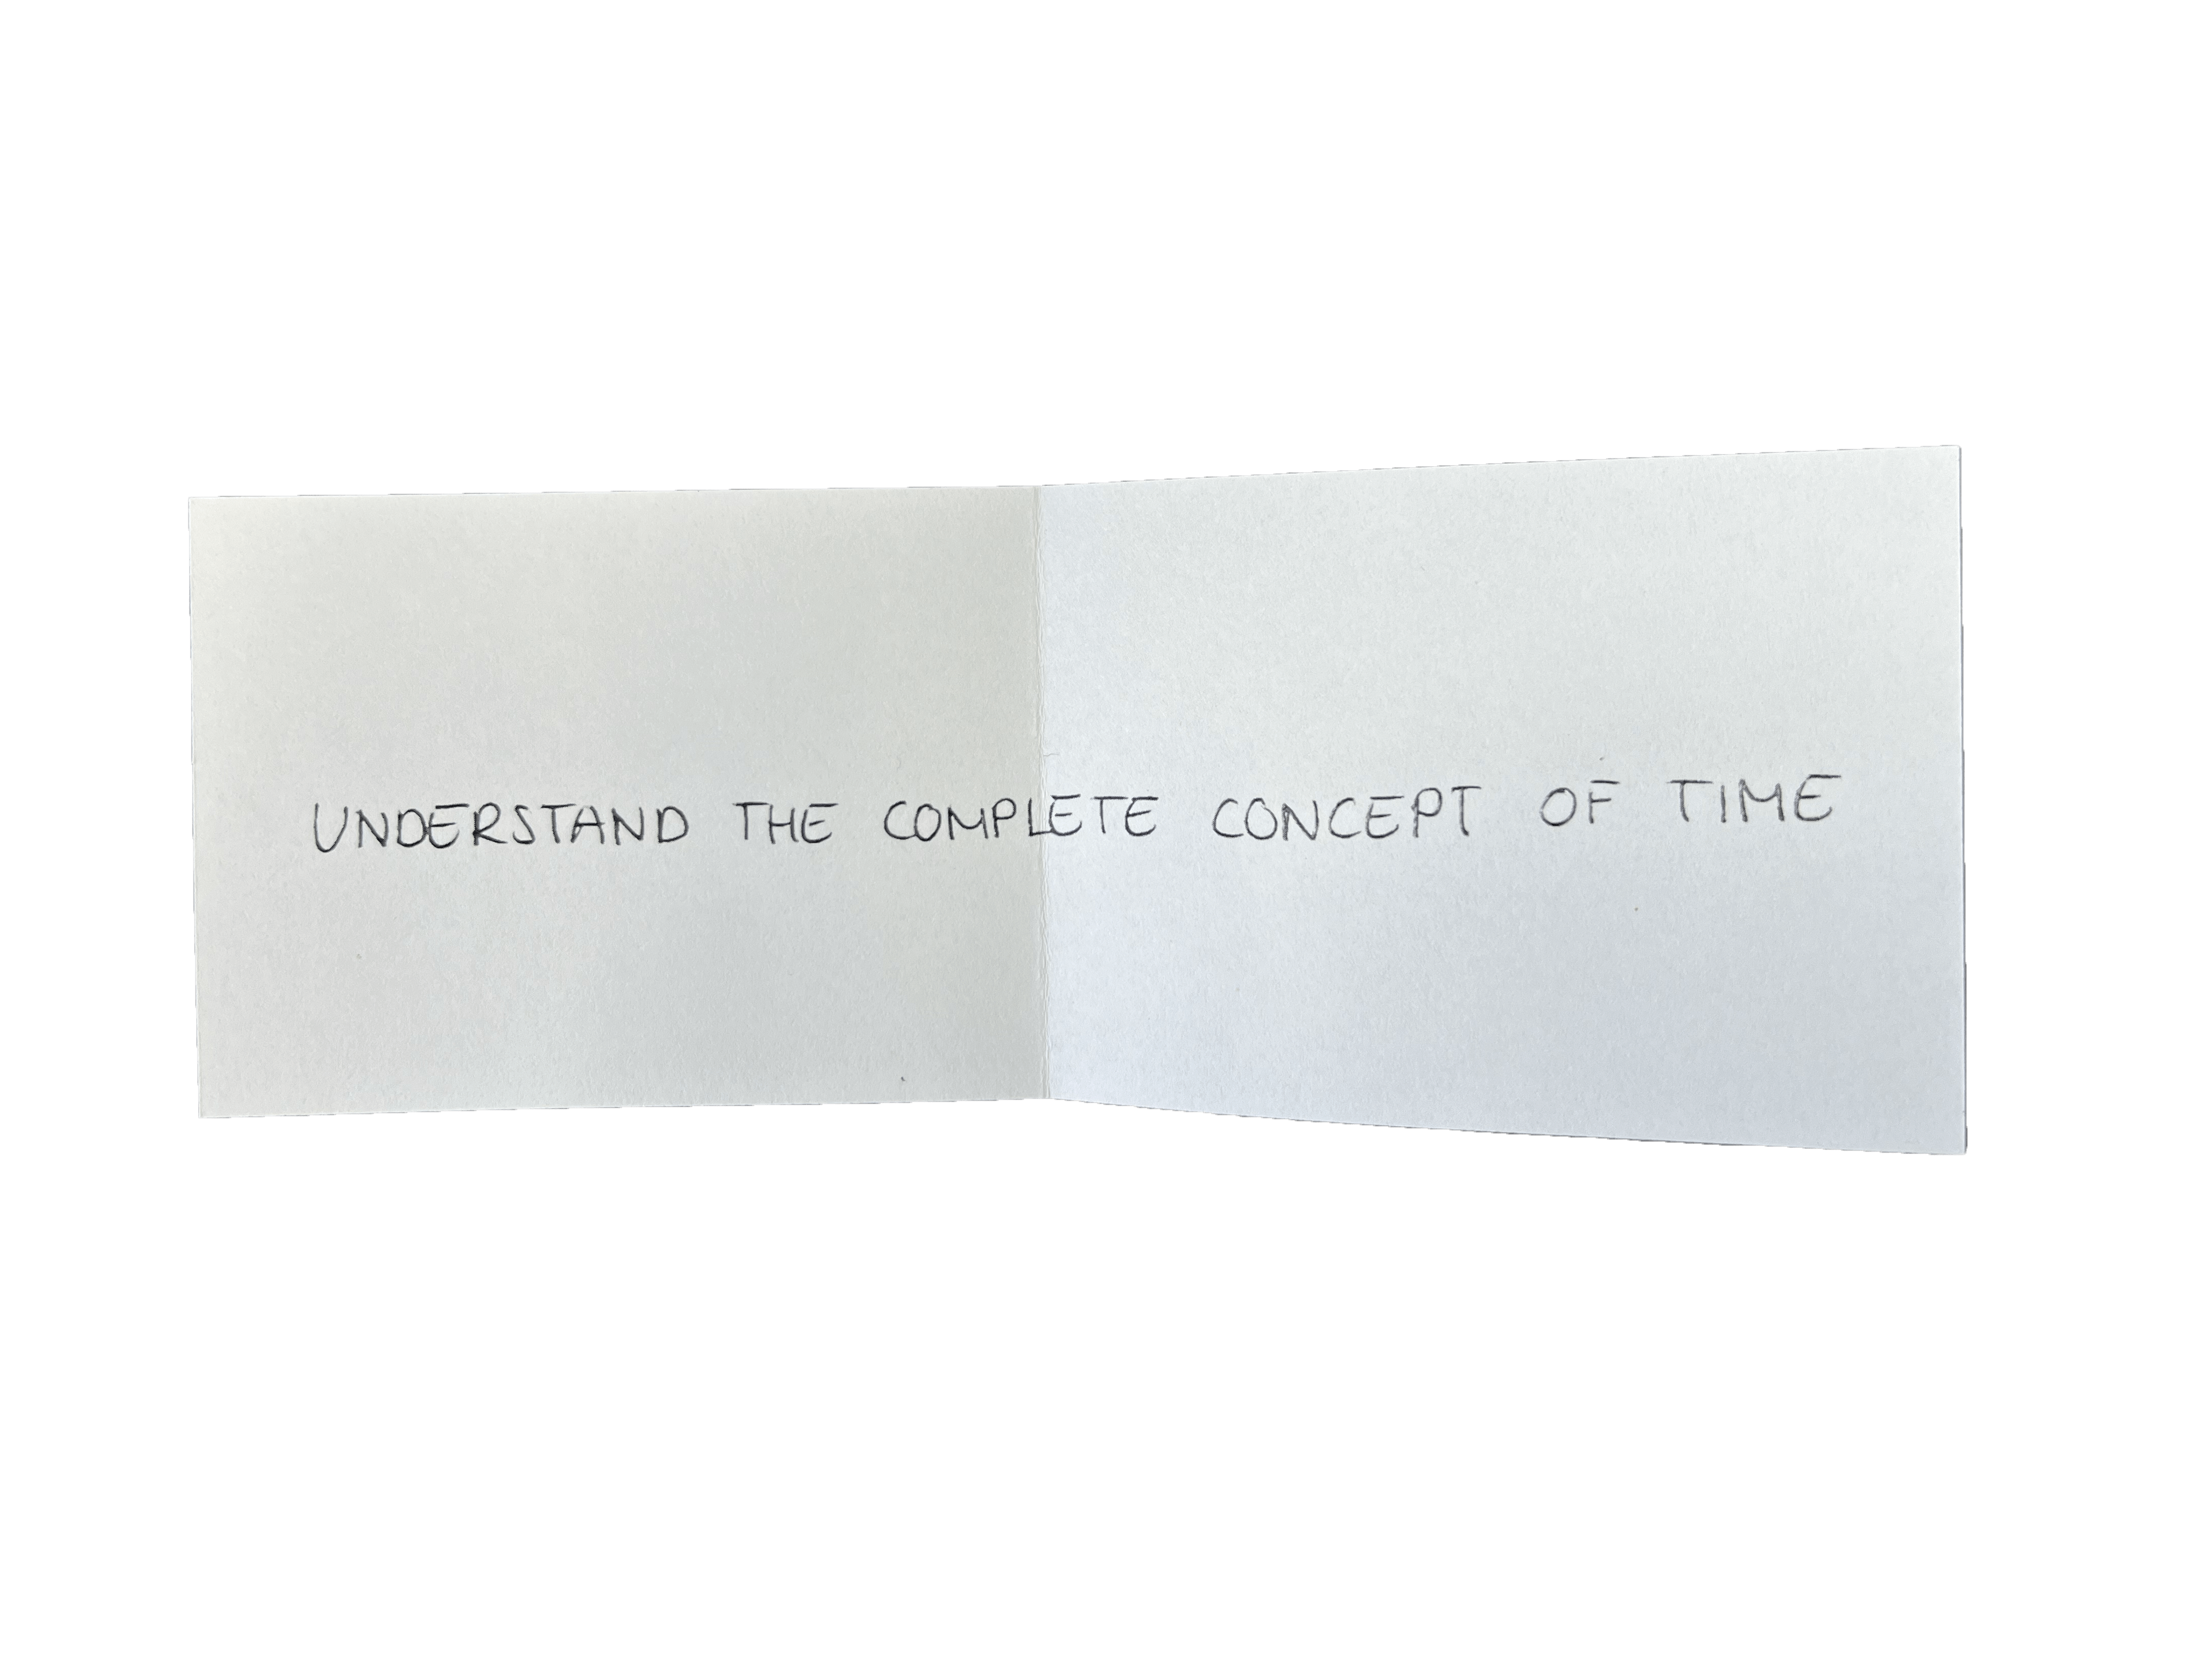 UNDERSTAND THE COMPLETE CONCEPT OF TIME